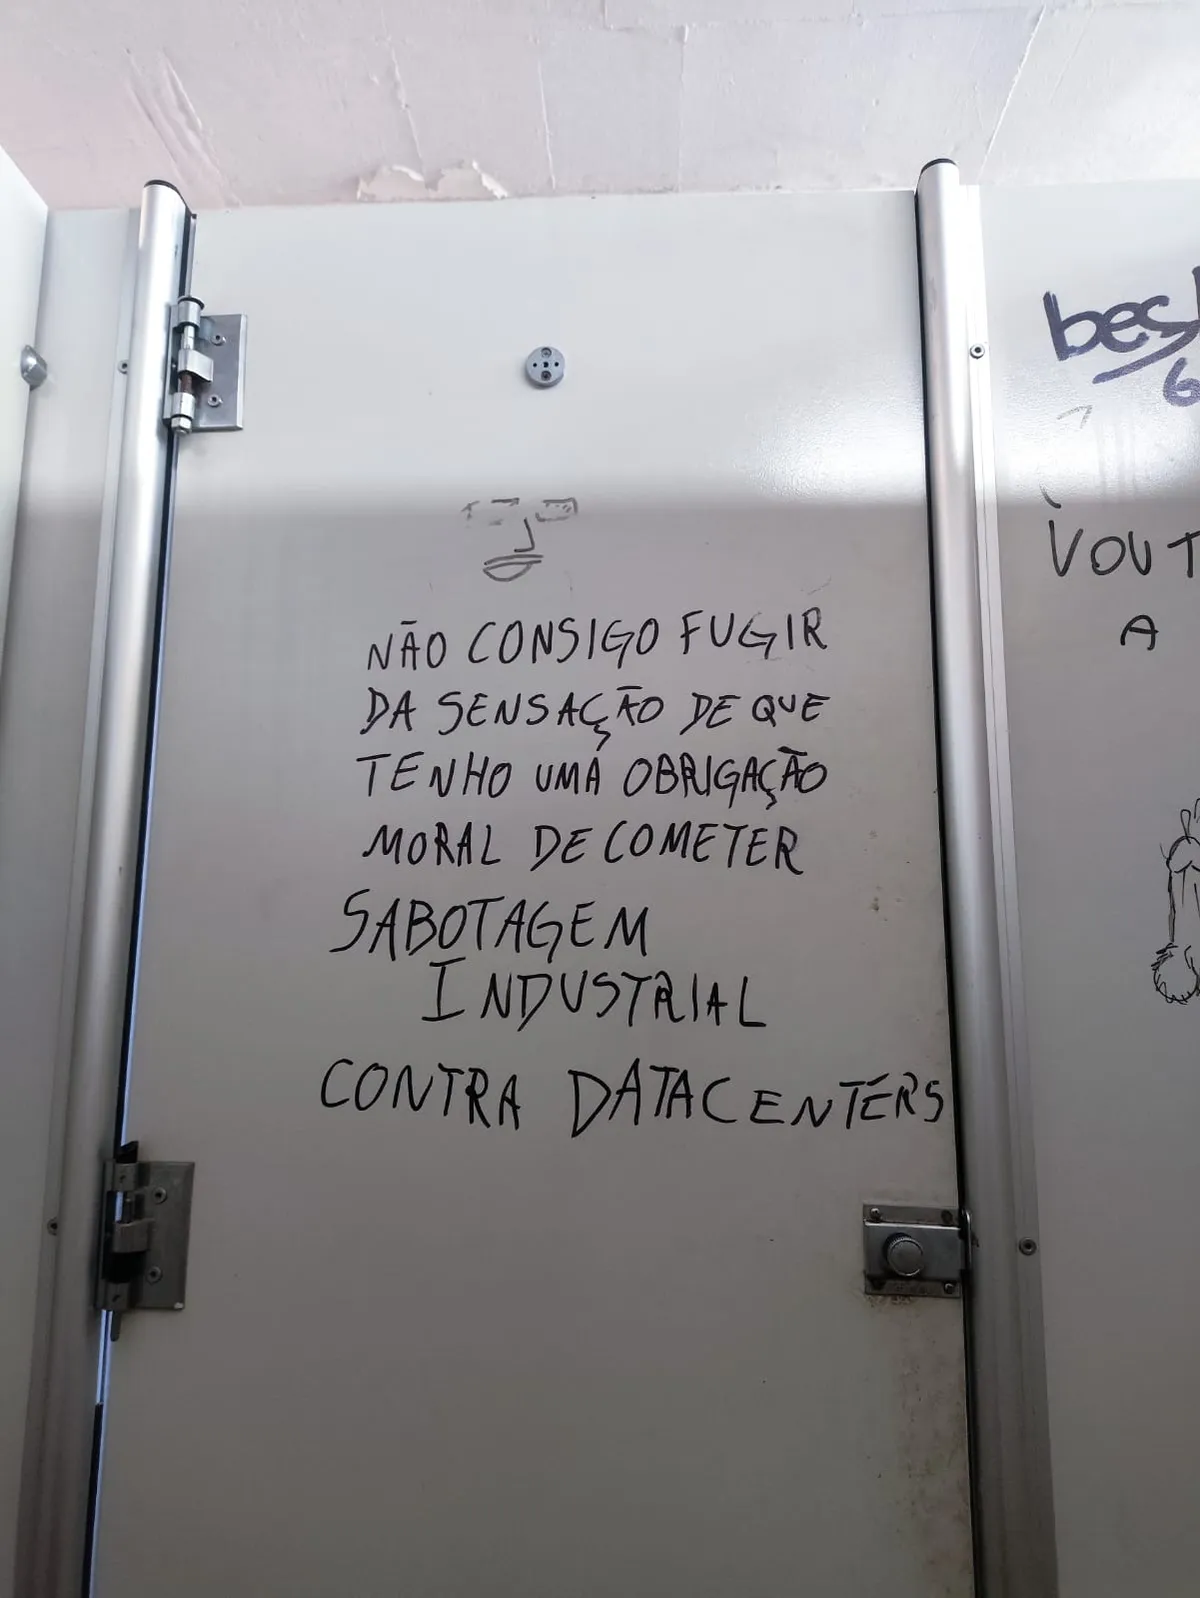 NÃO CONSIGO FUGIR
DA SENSAÇÃO DE QUE
TENHO UMA OBRIGAÇÃO
MORAL DE COMETER
SABOTAGEM
INDUSTRIAL
CONTRA DATACENTERS
VOU
A